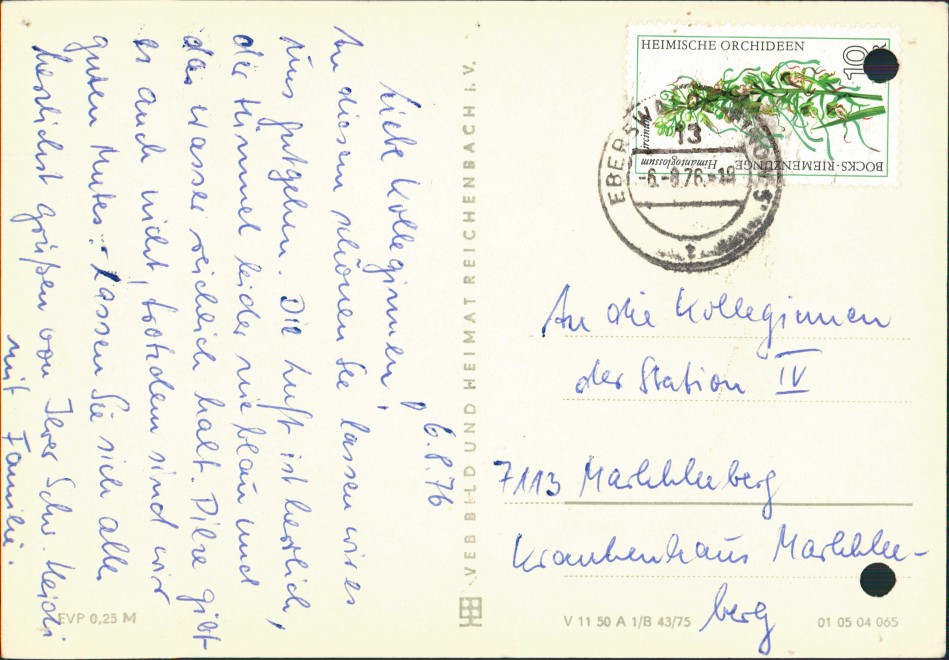 6.8.76
Liebe Kolleginnen!
An diesem schönen See lassen wir es
uns gutgehen. Die Luft ist herrlich,
der Himmel leider nie blau und
das Wasser reichlich kalt. Pilze gibt
es auch nicht, trotzdem sind wir
guten Mutes. Lassen Sie sich alle
herzlichst grüßen von Ihrer Schw. Heidi
mit Familie.
EVP 0,25 M
VEB BILD UND HEIMAT REICHENBACH i. V.
HEIMISCHE ORCHIDEEN
10
BOCKS-RIEMENZUNGE
Himantoglossum
hircinum
EBERSWALDE
13
-6.-8.76.-19
An die Kolleginnen
der Station IV
7113 Markkleeberg
Krankenhaus Markklee-
berg
V 11 50 A 1/B 43/75
01 05 04 065